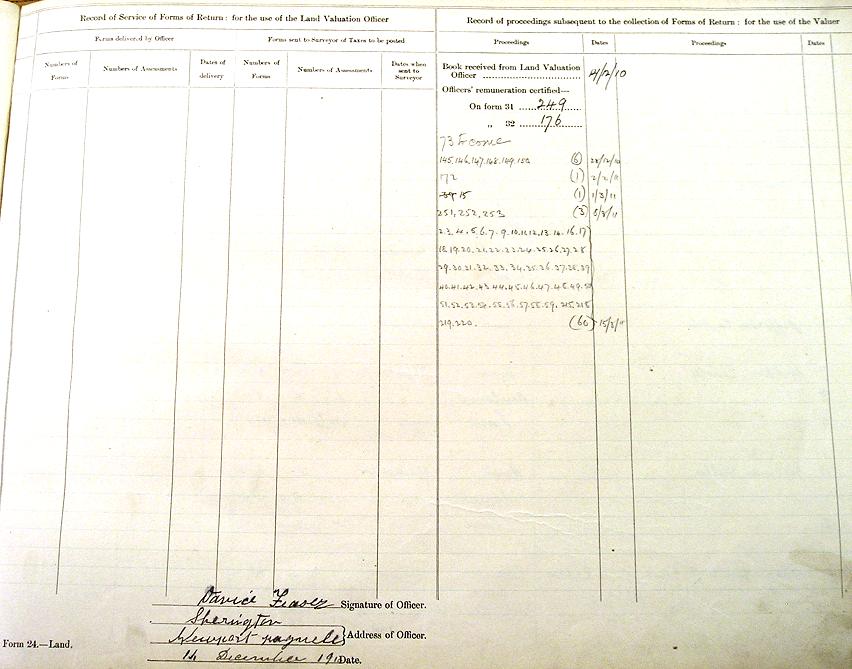 Record of Service of Forms of Return: for the use of the Land Valuation Officer
Forms delivered by Officer
Forms sent to Surveyor of Taxes to be posted
Numbers of Forms
Numbers of Assessments
Dates of delivery
Numbers of Forms
Numbers of Assessments
Dates when sent to Surveyor
Record of proceedings subsequent to the collection of Forms of Return: for the use of the Valuer
Proceedings
Dates
Proceedings
Dates
Book received from Land Valuation
Officer
Officers' remuneration certified—
On form 31 249
„ 32 176
145.146.147.148.149.150 (6)
172 (1) 2/2/11
15 (1) 1/3/11
251,252,253 (3) 8/3/11
2.3.4.5.6.7.9.10.11.12.13.14.16.17
18.19.20.21.22.23.24.25.26.27.28
29.30.31.32.33.34.35.36.37.38.39
40.41.42.43.44.45.46.47.48.49.50
51.52.53.54.55.56.57.58.59.215.218
219.220. (60) 15/3/11
Signature of Officer.
Sherington
Newport pagnell } Address of Officer.
14 December 191 Date.
Form 24.—Land.